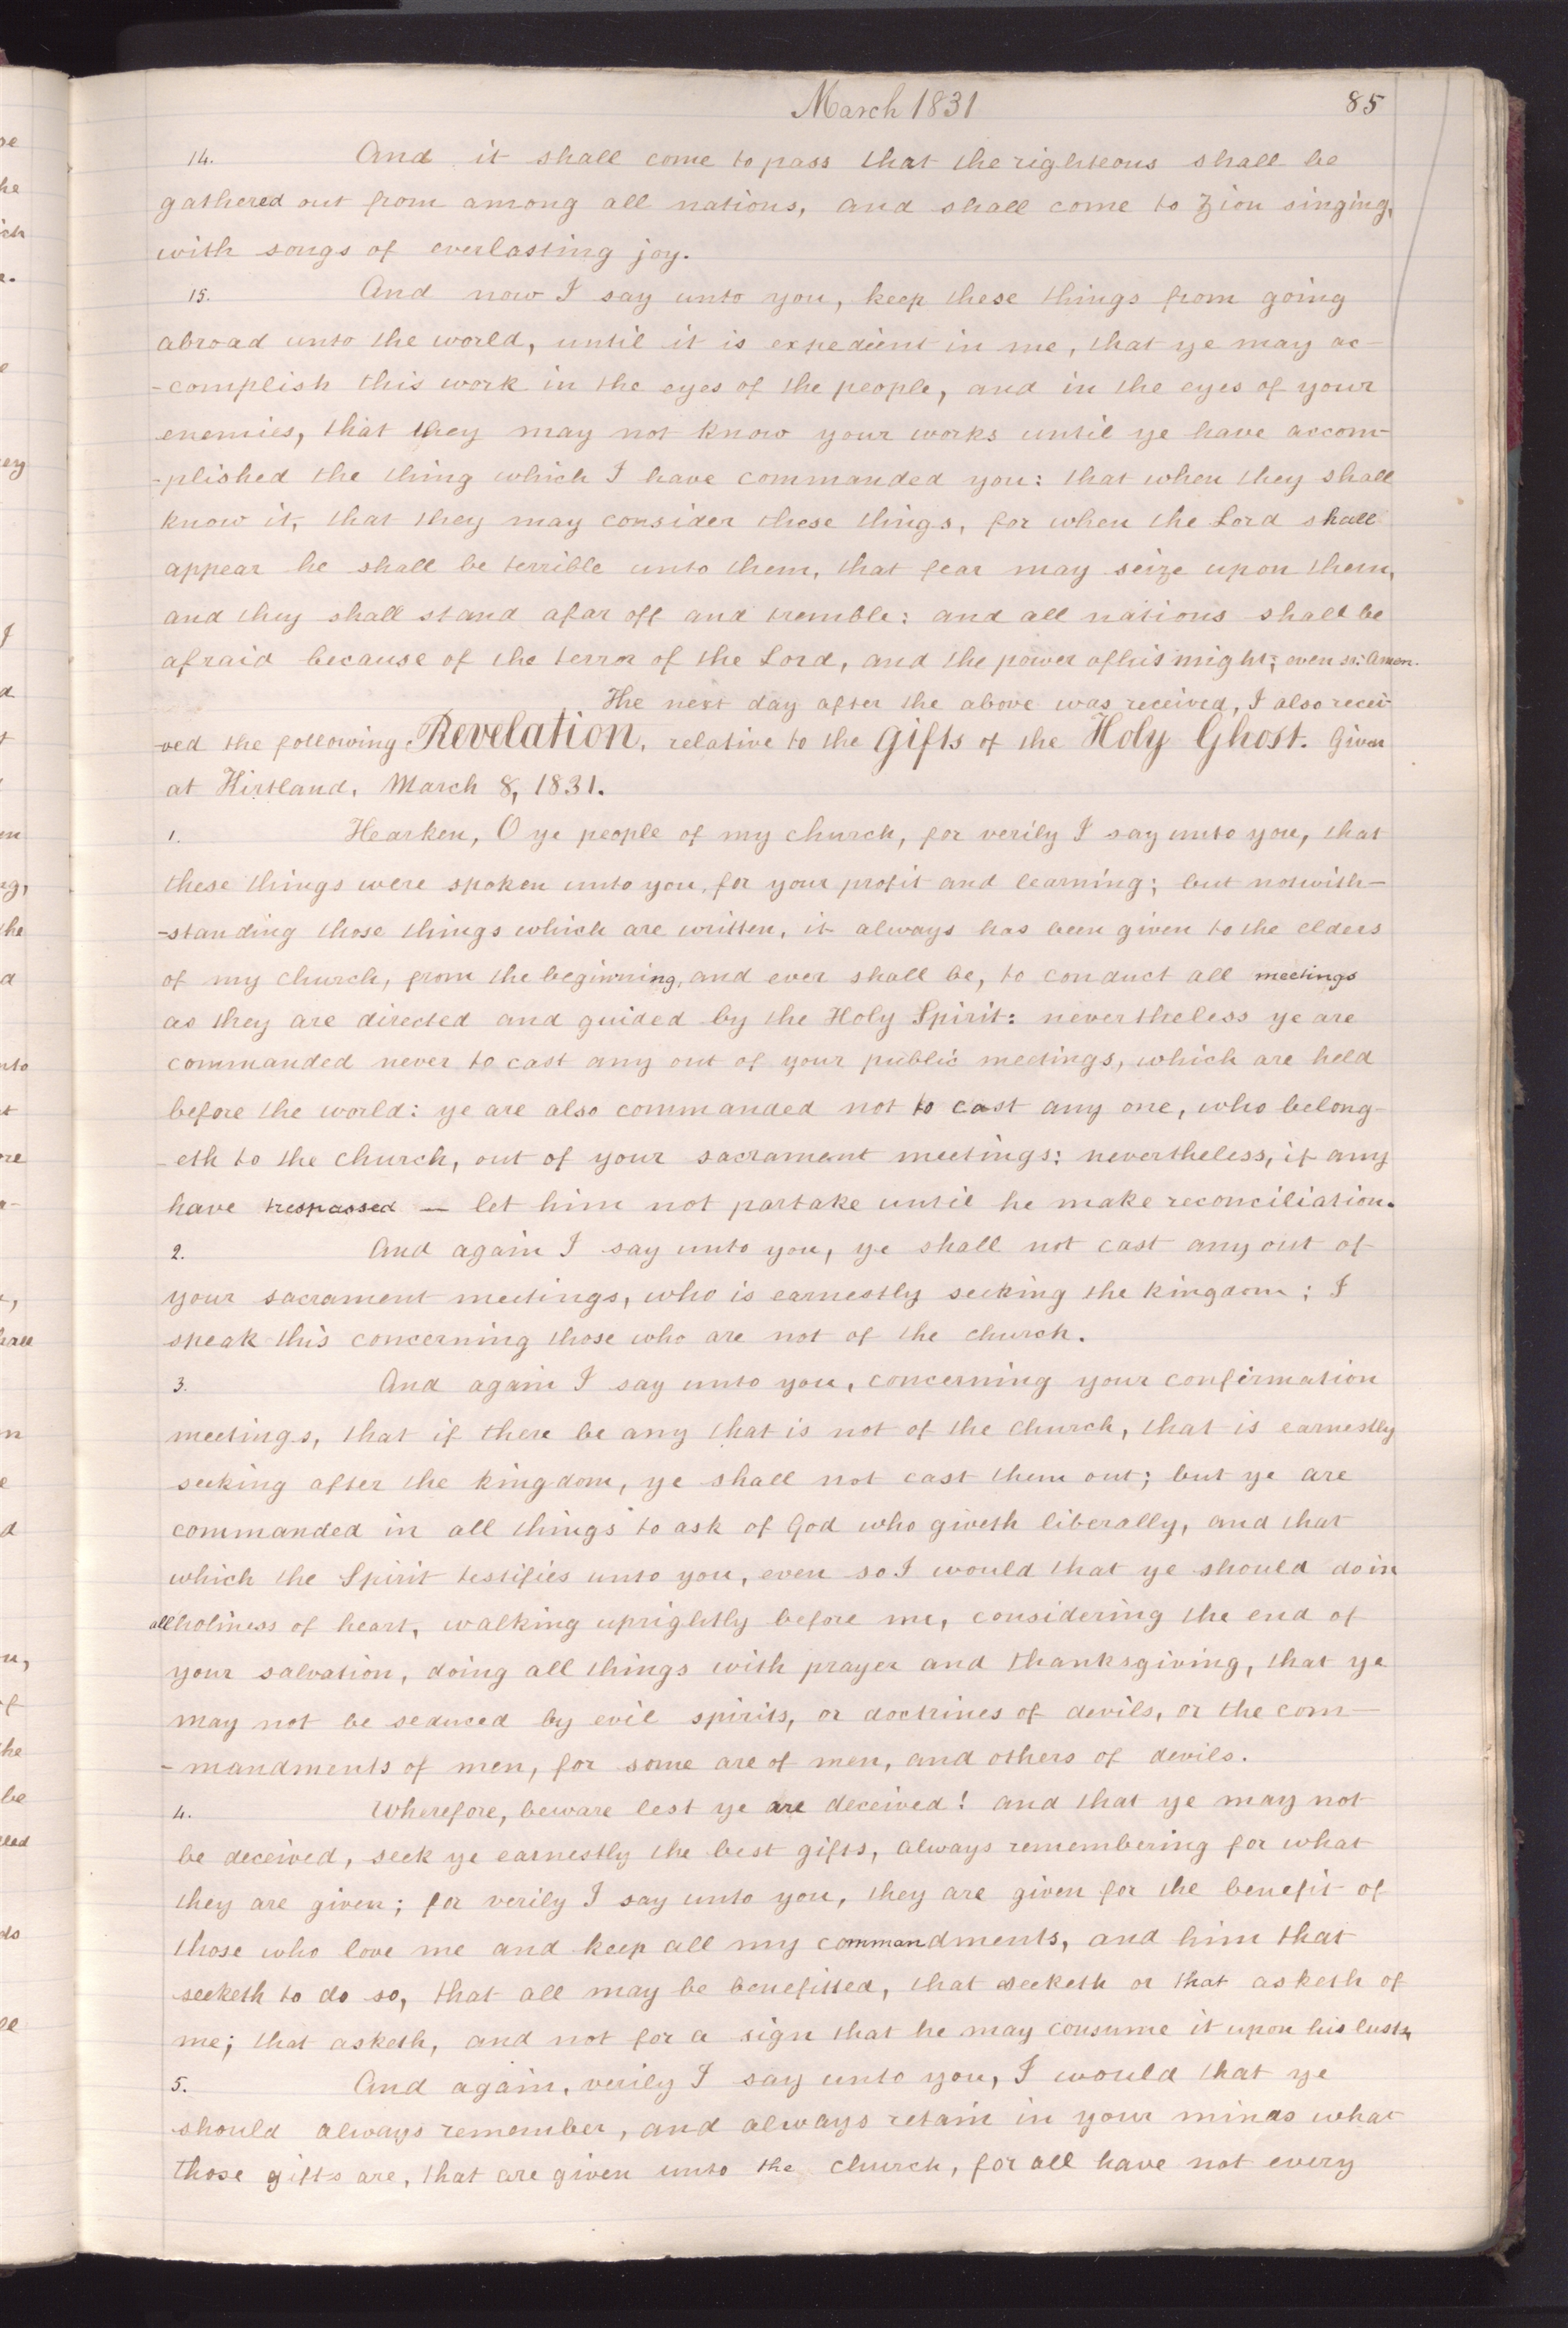 March 1831
85
14. And it shall come to pass that the righteous shall be
gathered out from among all nations, and shall come to Zion singing,
with songs of everlasting joy.
15. And now I say unto you, keep these things from going
abroad unto the world, until it is expedient in me, that ye may ac-
-complish this work in the eyes of the people, and in the eyes of your
enemies, that they may not know your works until ye have accom-
-plished the thing which I have commanded you: that when they shall
know it, that they may consider these things, for when the Lord shall
appear he shall be terrible unto them, that fear may seize upon them,
and they shall stand afar off and tremble: and all nations shall be
afraid because of the terror of the Lord, and the power of his might; even so: Amen.
The next day after the above was received, I also recei-
-ved the following Revelation, relative to the gifts of the Holy Ghost. Given
at Kirtland, March 8, 1831.
1. Hearken, O ye people of my church, for verily I say unto you, that
these things were spoken unto you, for your profit and learning; but notwith-
-standing those things which are written, it always has been given to the elders
of my church, from the beginning, and ever shall be, to conduct all meetings
as they are directed and guided by the Holy Spirit: nevertheless ye are
commanded never to cast any out of your public meetings, which are held
before the world: ye are also commanded not to cast any one, who belong-
-eth to the church, out of your sacrament meetings: nevertheless, if any
have trespassed — let him not partake until he make reconciliation.
2. And again I say unto you, ye shall not cast any out of
your sacrament meetings, who is earnestly seeking the kingdom; I
speak this concerning those who are not of the church.
3. And again I say unto you, concerning your confirmation
meetings, that if there be any that is not of the church, that is earnestly
seeking after the kingdom, ye shall not cast them out; but ye are
commanded in all things to ask of God who giveth liberally, and that
which the Spirit testifies unto you, even so I would that ye should do in
all holiness of heart, walking uprightly before me, considering the end of
your salvation, doing all things with prayer and thanksgiving, that ye
may not be seduced by evil spirits, or doctrines of devils, or the com-
-mandments of men, for some are of men, and others of devils.
4. Wherefore, beware lest ye are deceived! and that ye may not
be deceived, seek ye earnestly the best gifts, always remembering for what
they are given; for verily I say unto you, they are given for the benefit of
those who love me and keep all my commandments, and him that
seeketh to do so, that all may be benefitted, that seeketh or that asketh of
me; that asketh, and not for a sign that he may consume it upon his lusts,
5. And again, verily I say unto you, I would that ye
should always remember, and always retain in your minds what
those gifts are, that are given unto the church, for all have not every